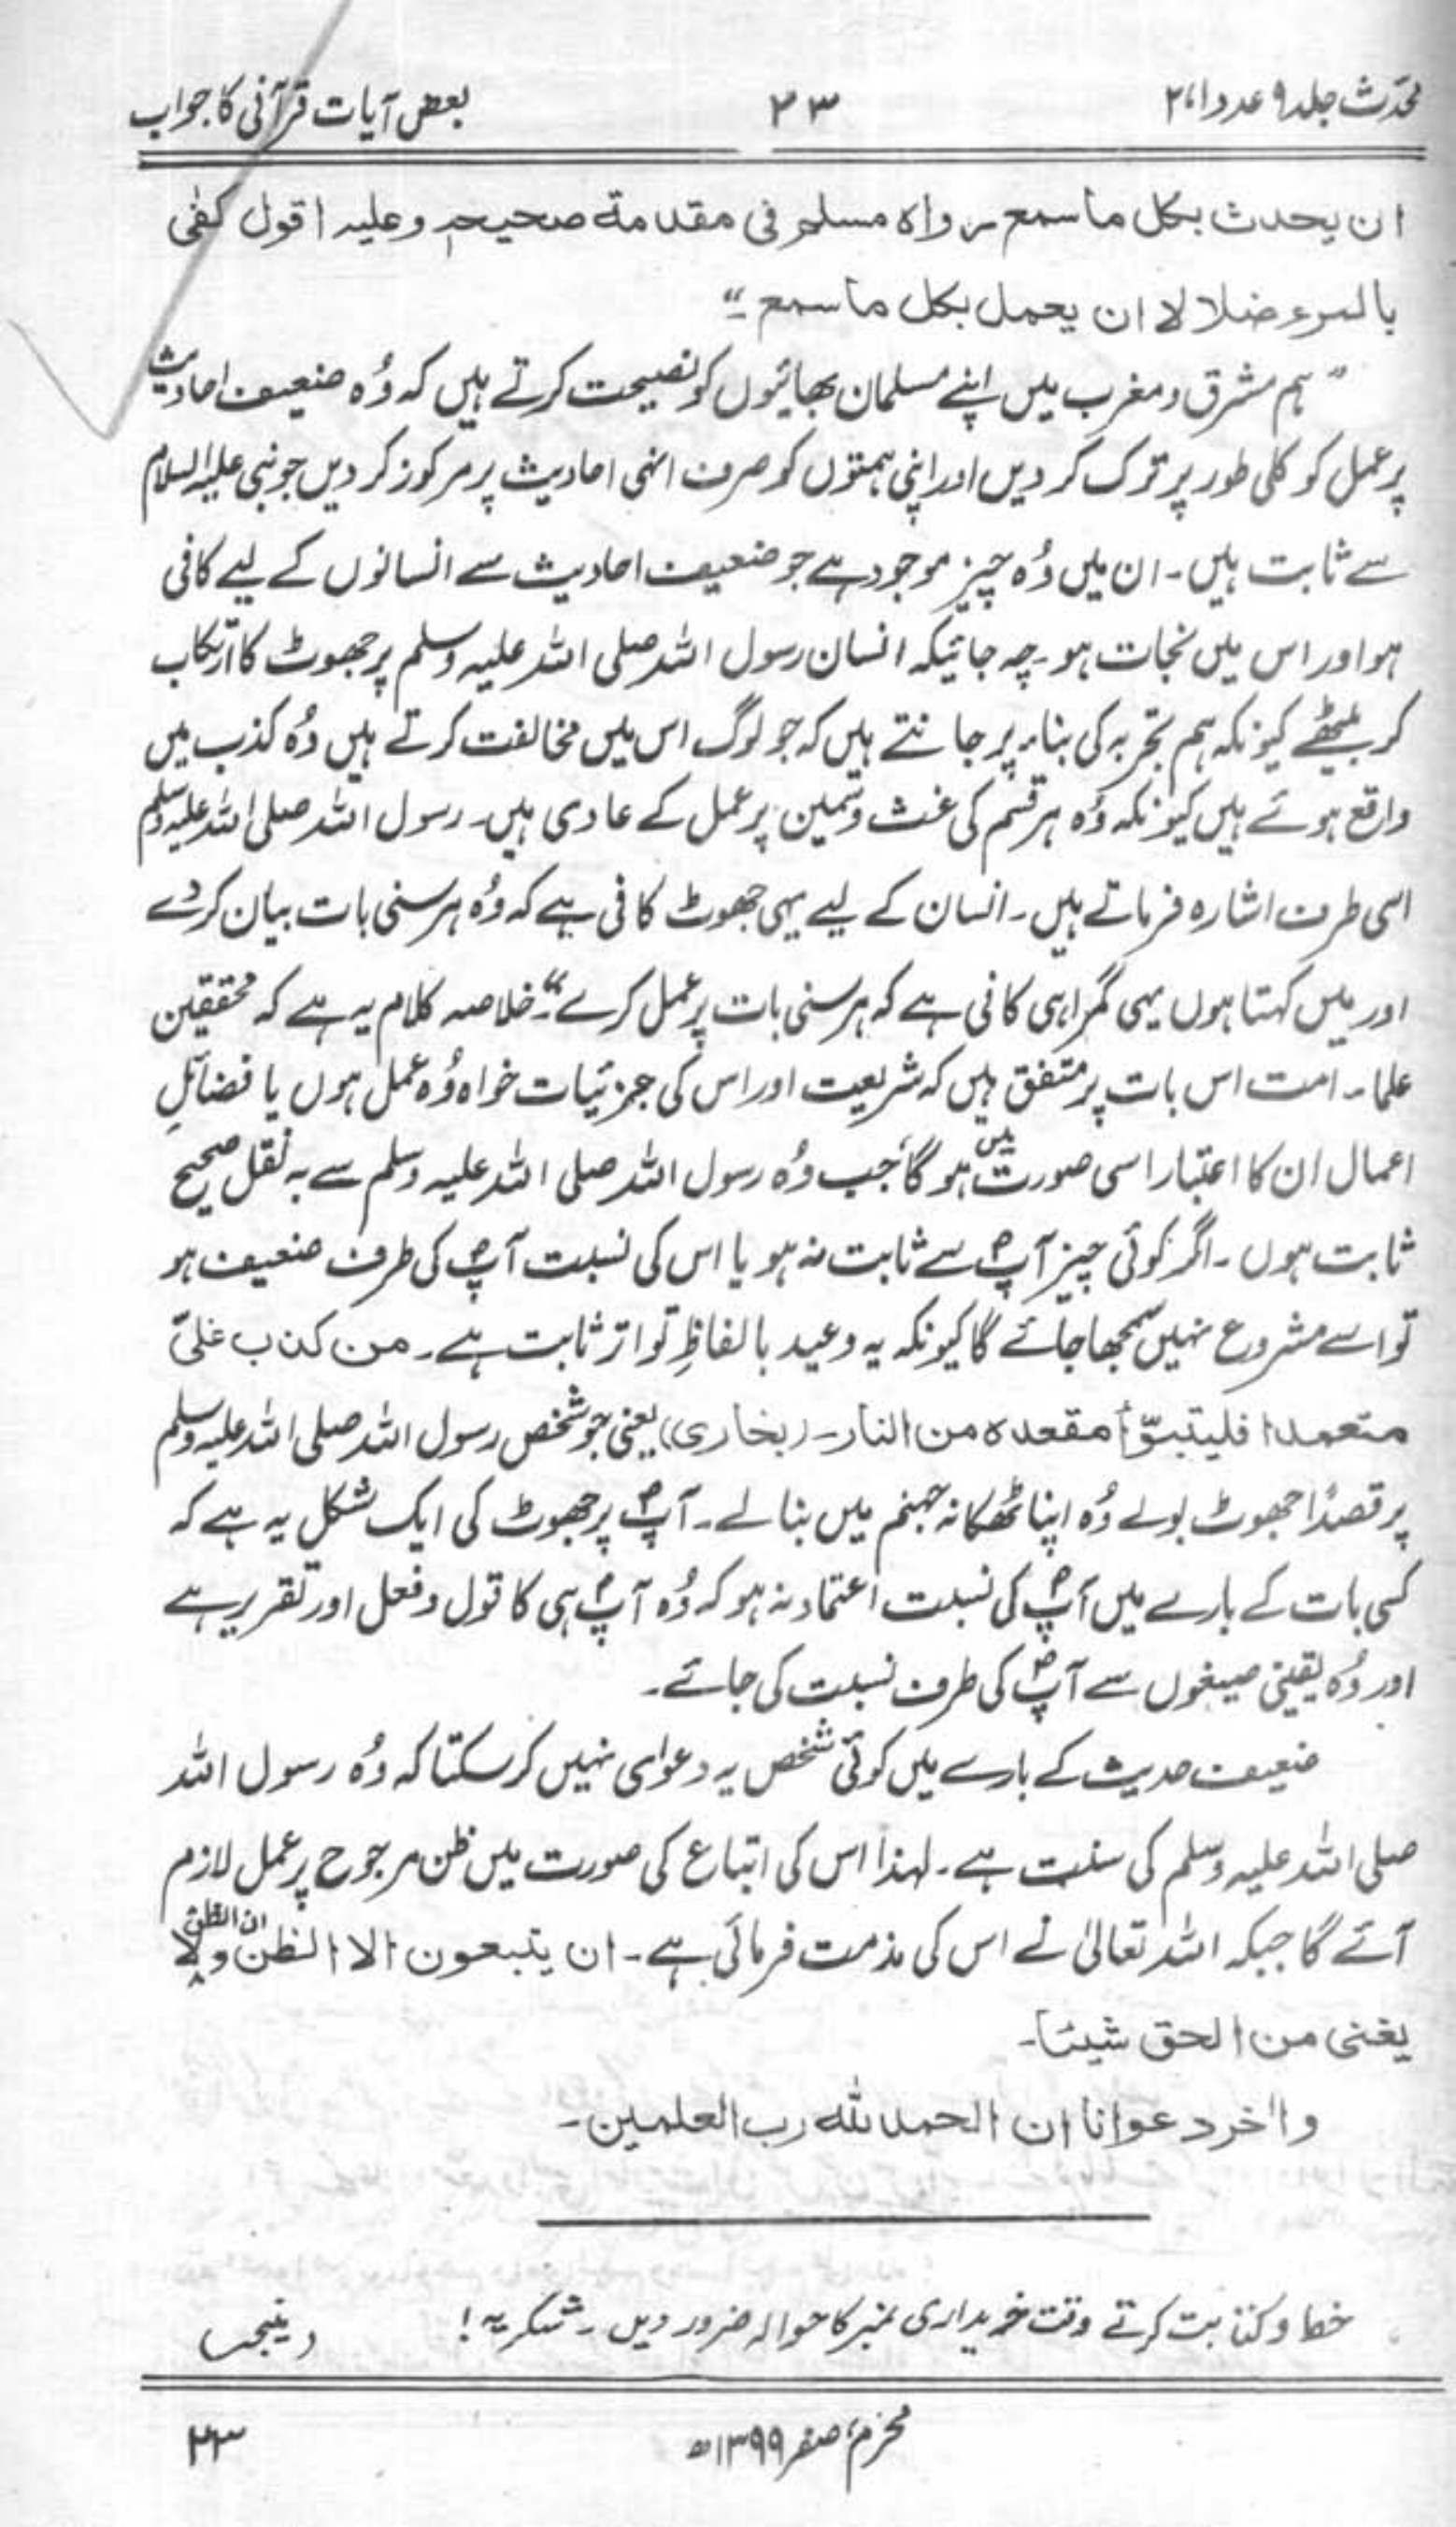 محدّث جلد ۹ عدد ۱، ۲
۲۳
بعض آیات قرآنی کا جواب
ان یحدث بکل ما سمع رواہ مسلم فی مقدمة صحیحہ وعلیہ اقول کفٰی
بالمرء ضلالا ان یعمل بکل ما سمع ۔"
"ہم مشرق و مغرب میں اپنے مسلمان بھائیوں کو نصیحت کرتے ہیں کہ وُہ ضعیف احادیث
پر عمل کو کلی طور پر ترک کر دیں اور اپنی ہمتوں کو صرف انہی احادیث پر مرکوز کر دیں جو نبی علیہ السلام
سے ثابت ہیں۔ ان میں وُہ چیز موجود ہے جو ضعیف احادیث سے انسانوں کے لیے کافی
ہو اور اس میں نجات ہو۔ چہ جائیکہ انسان رسول اللہ صلی اللہ علیہ وسلم پر جھوٹ کا ارتکاب
کر بیٹھے کیونکہ ہم تجربہ کی بناء پر جانتے ہیں کہ جو لوگ اس میں مخالفت کرتے ہیں وُہ کذب میں
واقع ہوئے ہیں کیونکہ وُہ ہر قسم کی غث و سمین پر عمل کے عادی ہیں۔ رسول اللہ صلی اللہ علیہ وسلم
اسی طرف اشارہ فرماتے ہیں۔ انسان کے لیے یہی جھوٹ کافی ہے کہ وُہ ہر سنی بات بیان کر دے
اور میں کہتا ہوں یہی گمراہی کافی ہے کہ ہر سنی بات پر عمل کرے"۔ خلاصہ کلام یہ ہے کہ محققین
علماء امت اس بات پر متفق ہیں کہ شریعت اور اس کی جزئیات خواہ وُہ عمل ہوں یا فضائلِ
اعمال ان کا اعتبار اسی صورت میں ہو گا، جب وُہ رسول اللہ صلی اللہ علیہ وسلم سے بہ نقل صحیح
ثابت ہوں۔ اگر کوئی چیز آپؐ سے ثابت نہ ہو یا اس کی نسبت آپؐ کی طرف ضعیف ہو
تو اسے مشروع نہیں سمجھا جائے گا کیونکہ یہ وعید بالفاظِ تواتر ثابت ہے۔ من کذب علیّ
متعمدا فلیتبوّأ مقعدہ من النار۔ (بخاری) یعنی جو شخص رسول اللہ صلی اللہ علیہ وسلم
پر قصدًا جھوٹ بولے وُہ اپنا ٹھکانہ جہنم میں بنا لے۔ آپؐ پر جھوٹ کی ایک شکل یہ ہے کہ
کسی بات کے بارے میں آپؐ کی نسبت اعتماد نہ ہو کہ وُہ آپؐ ہی کا قول و فعل اور تقریر ہے
اور وُہ یقینی صیغوں سے آپؐ کی طرف نسبت کی جائے۔
ضعیف حدیث کے بارے میں کوئی شخص یہ دعوٰی نہیں کر سکتا کہ وُہ رسول اللہ
صلی اللہ علیہ وسلم کی سنت ہے۔ لہٰذا اس کی اتباع کی صورت میں ظن مرجوح پر عمل لازم
آئے گا جبکہ اللہ تعالیٰ نے اس کی مذمت فرمائی ہے۔ ان یتبعون الا الظن و ان الظن لا
یغنی من الحق شیئا۔
واٰخر دعوانا ان الحمد للہ رب العلمین۔
خط و کتابت کرتے وقت خریداری نمبر کا حوالہ ضرور دیں۔ شکریہ! (منیجر)
محرّم، صفر ۱۳۹۹ھ
۲۳